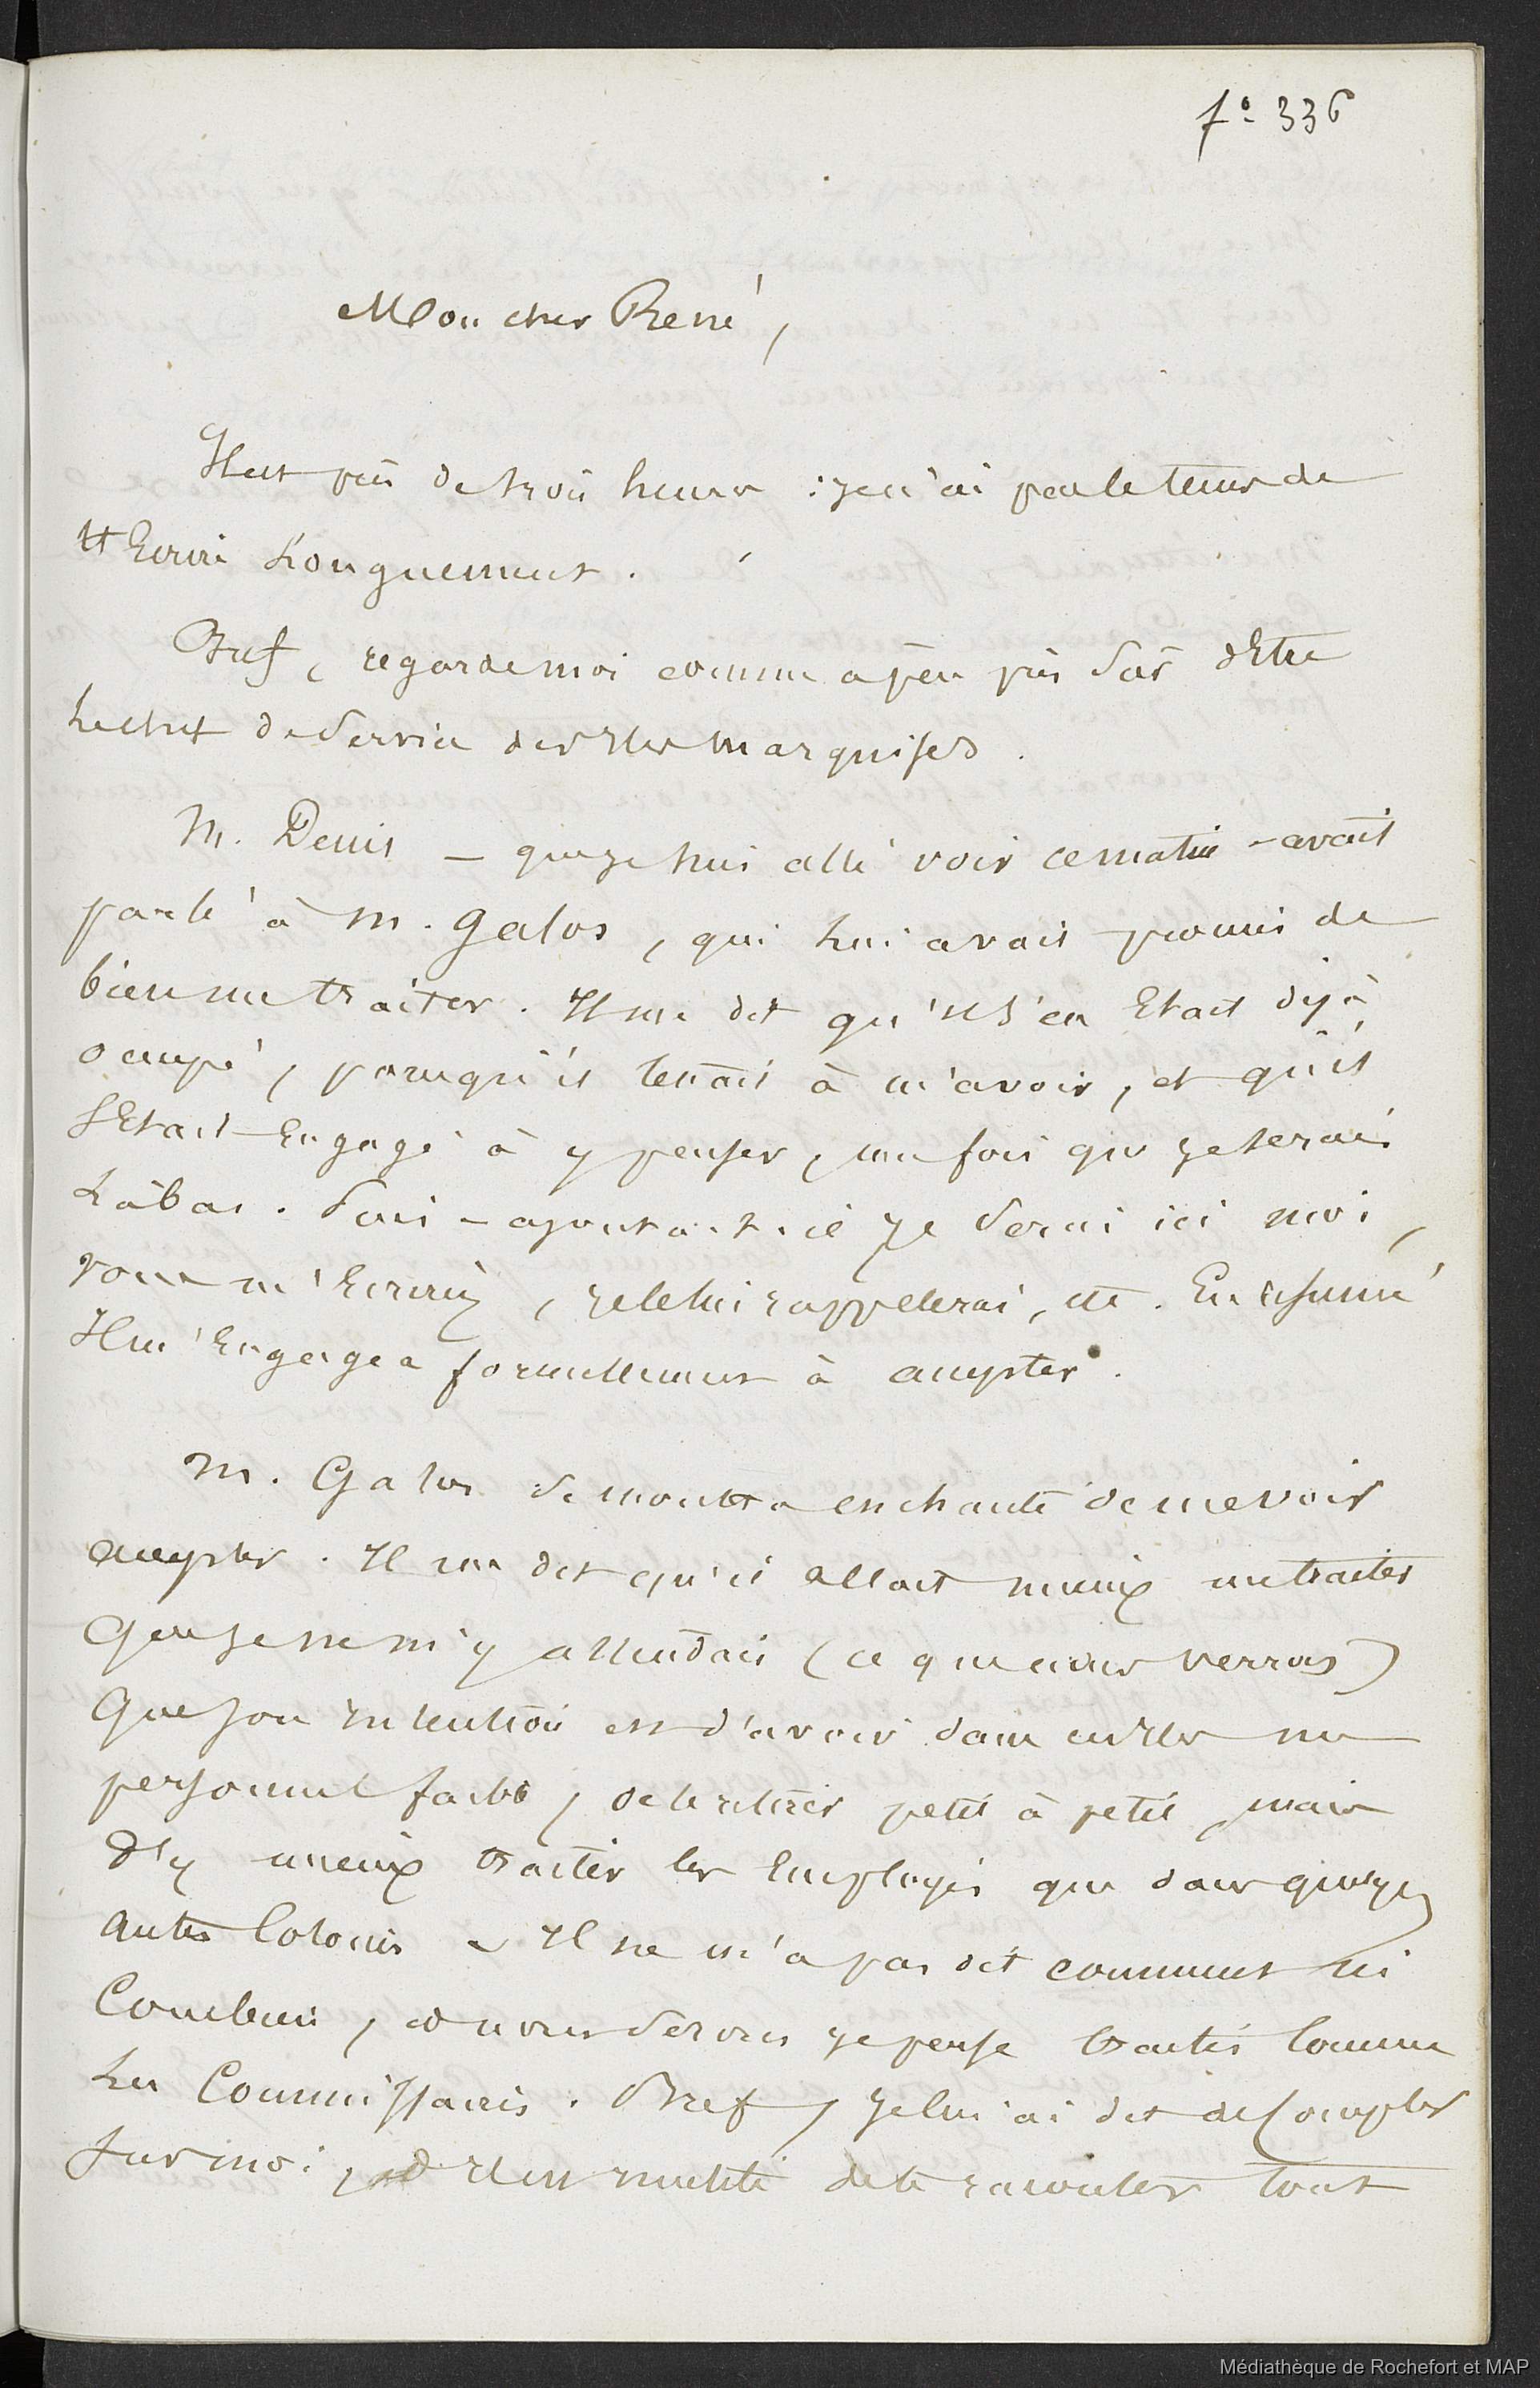 fº 336
Mon cher René,
Il est près de trois heures : je n'ai pas le tems de
t'Ecrire Longuement.
Bref, regarde moi comme à peu près sûr d'Etre
Le chef de Service des Iles Marquises.
M. Denis — que je suis allé voir ce matin — avait
parlé à M. Galos, qui lui avait promis de
bien me traiter. Il me dit qu'il s'en Etait déjà
occupé, parcequ'il tenait à m'avoir, et qu'il
s'Etait Engagé à y penser, une fois que je serais
Làbas. Puis — ajouta-t-il je serai ici moi,
vous m'Ecrirez, je le lui rappellerai, etc. En résumé
Il m'Engagea formellement à accepter.
M. Galos se montra enchanté de me voir
accepter. Il me dit qu'il allait mieux me traiter
que je ne m'y attendais (ce que nous verrons)
que son intention est d'avoir dans ces Iles un
personnel faible, de le retirer petit à petit, mais
d'y mieux traiter les Employés que dans quelques
autres Colonies. Il ne m'a pas dit comment ni
Combien, et nous serons je pense traités Comme
Les Commissaires. Bref, je lui ai dit de Compter
sur moi, et il est inutile de te raconter tout
Médiathèque de Rochefort et MAP